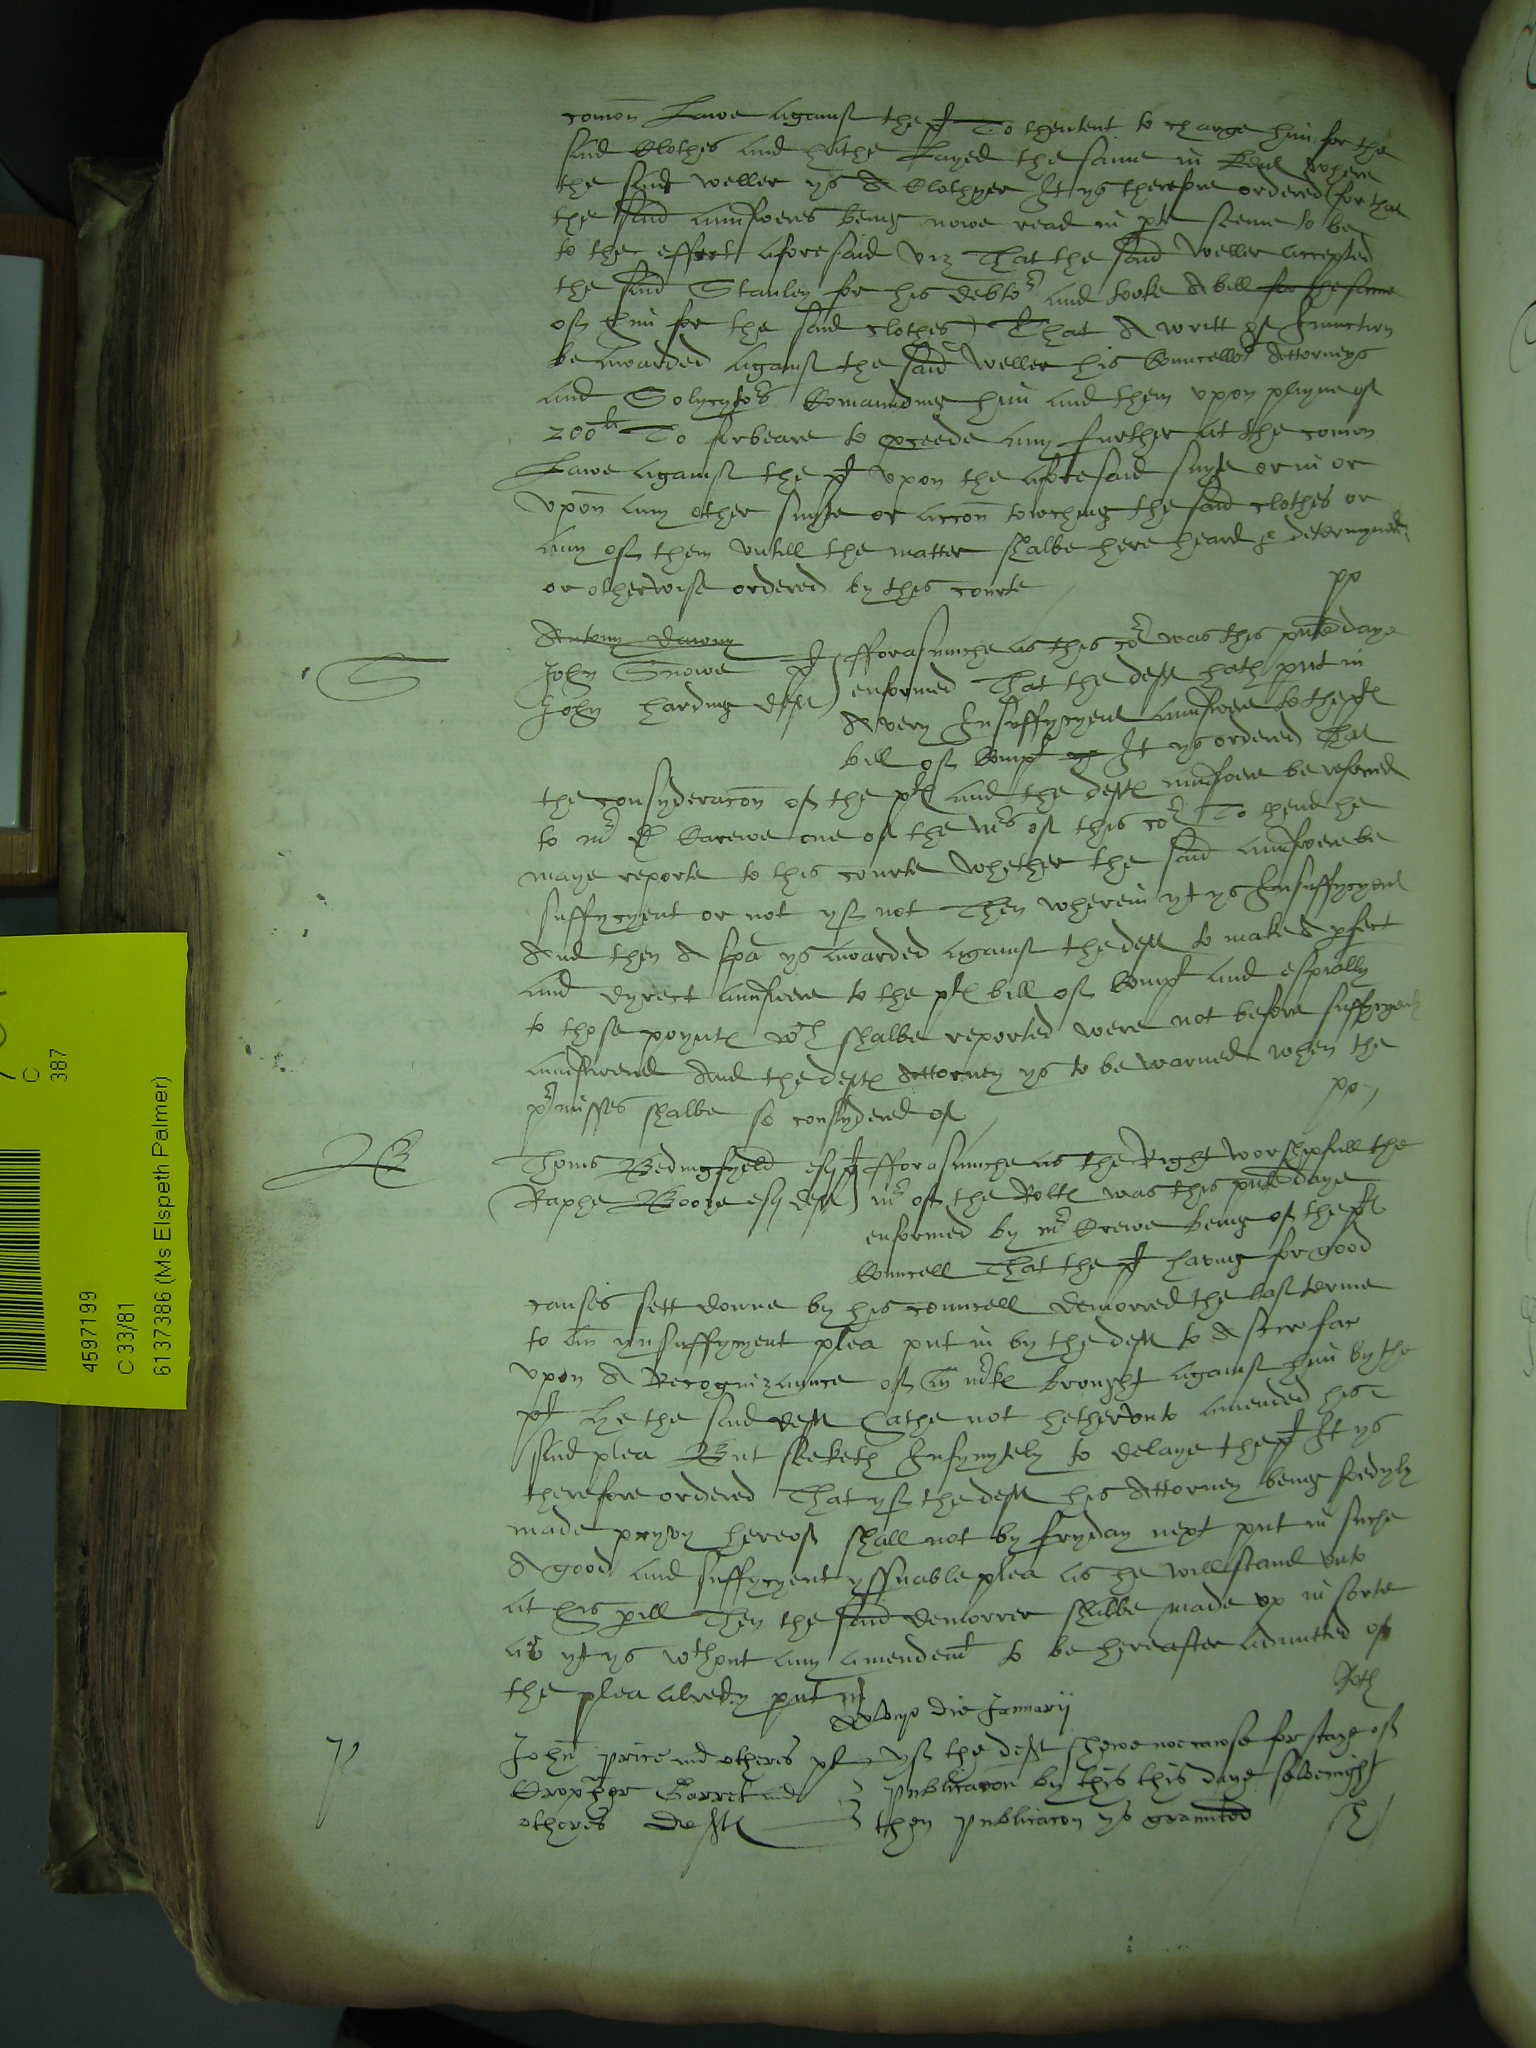 comon Lawe against the pl To thentent to charge him for the
said Clothes and hathe Layed the same in Kent where
the said weller ys A Clothyer It ys therefore ordered (for that
the said aunsweres being nowe read in pte seeme to be
to the effect aforesaid viz That the said Weller accepted
the said Stanley for his debtor and tooke A bill for the same
of him for the said clothes) That A writt of Iniunction
be awarded against the said Weller his Councellors Attorneys
and Solycytors Comaunding him and them upon payne of
200li To forbeare to pceede any further at the comon
Lawe against the pl upon the aforesaid suyte or in or
vpon any other suyte or accon towching the said clothes or
any of them vntill the matter shalbe here heard & determyned
or otherwise ordered by this courte
pp
Antony
S
John Snowe pl
John harding deft
fforasmuche as this cort was this pnte daye
enformed That the deft hath put in
A very Insuffycyent aunswere to the pltes
bill of Compt It ys ordered That
the consyderacon of the pltes and the deftes aunswere be referred
to mr Carewe one of the mrs of this cort To thend he
maye reporte to this courte whether the said aunswere be
suffycyent or not yf not Then wherein yt ys Insuffycyent
And then A spa ys awarded against the deft to make A pfect
and dyrect aunswere to the pltes bill of Compt and espially
to those poyntes wch shalbe reported were not before suffycyently
aunswered And the deftes Attorney ys to be warned when the
pmisses shalbe so consydered of
pp
B
Thoms Bedingfyeld esq pl
Raphe Boore esq deft
fforasmuche as the Right worshipfull the
mr of the Rolles was this pnte daye
enformed by mr Crewe being of the pltes
Councell That the pl having for good
causes sett downe by his councell demorred the last terme
to an ynsuffycyent plea put in by the deft to A scire fac
vpon A Recognizaunce of brought against him by the
pl he the said deft hathe not hetherunto amended his
said plea But seeketh Infynytely to delaye the pl It ys
therefore ordered That yf the deft his Attorney being
made pryvy hereof shall not by fryday next put in suche
A good and suffycyent yssuable plea as he will stand vnto
at his perill Then the said demorrer shalbe made vp in sorte
as yt ys wthout any amendemt to be hereafter admitted of
the plea alredy put in
die Januarij
p
John price and others pl
Cropher Garret and
others deftes
yf the deft shewe noe cawse for staye of
publicacon by this this daye sevenight
then publicacon ys graunted
4597199
C 33/81
6137386 (Ms Elspeth Palmer)
C
387